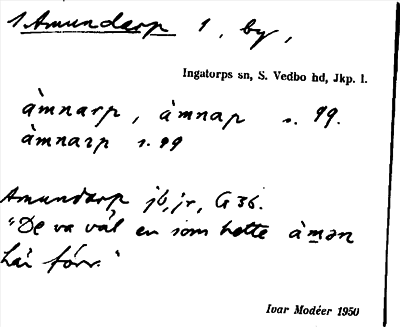 1 Amundarp 1, by,
Ingatorps sn, S. Vedbo hd, Jkp. l.
àmnarp, àmnap s. 99.
àmnarp s. 99
Amundarp jb, jr, G 36.
"De va väl en som hette àmən
här förr."
Ivar Modéer 1950